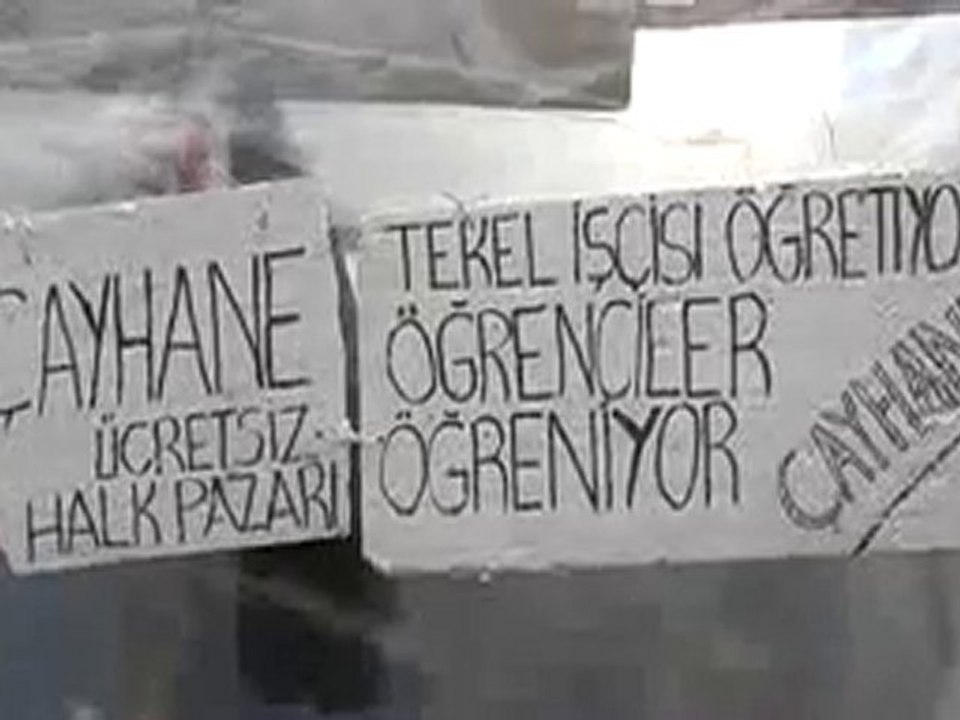 ÇAYHANE
ÜCRETSİZ
HALK PAZARI
TEKEL İŞÇİSİ ÖĞRETİYO
ÖĞRENCİLER
ÖĞRENİYOR
ÇAYHAN